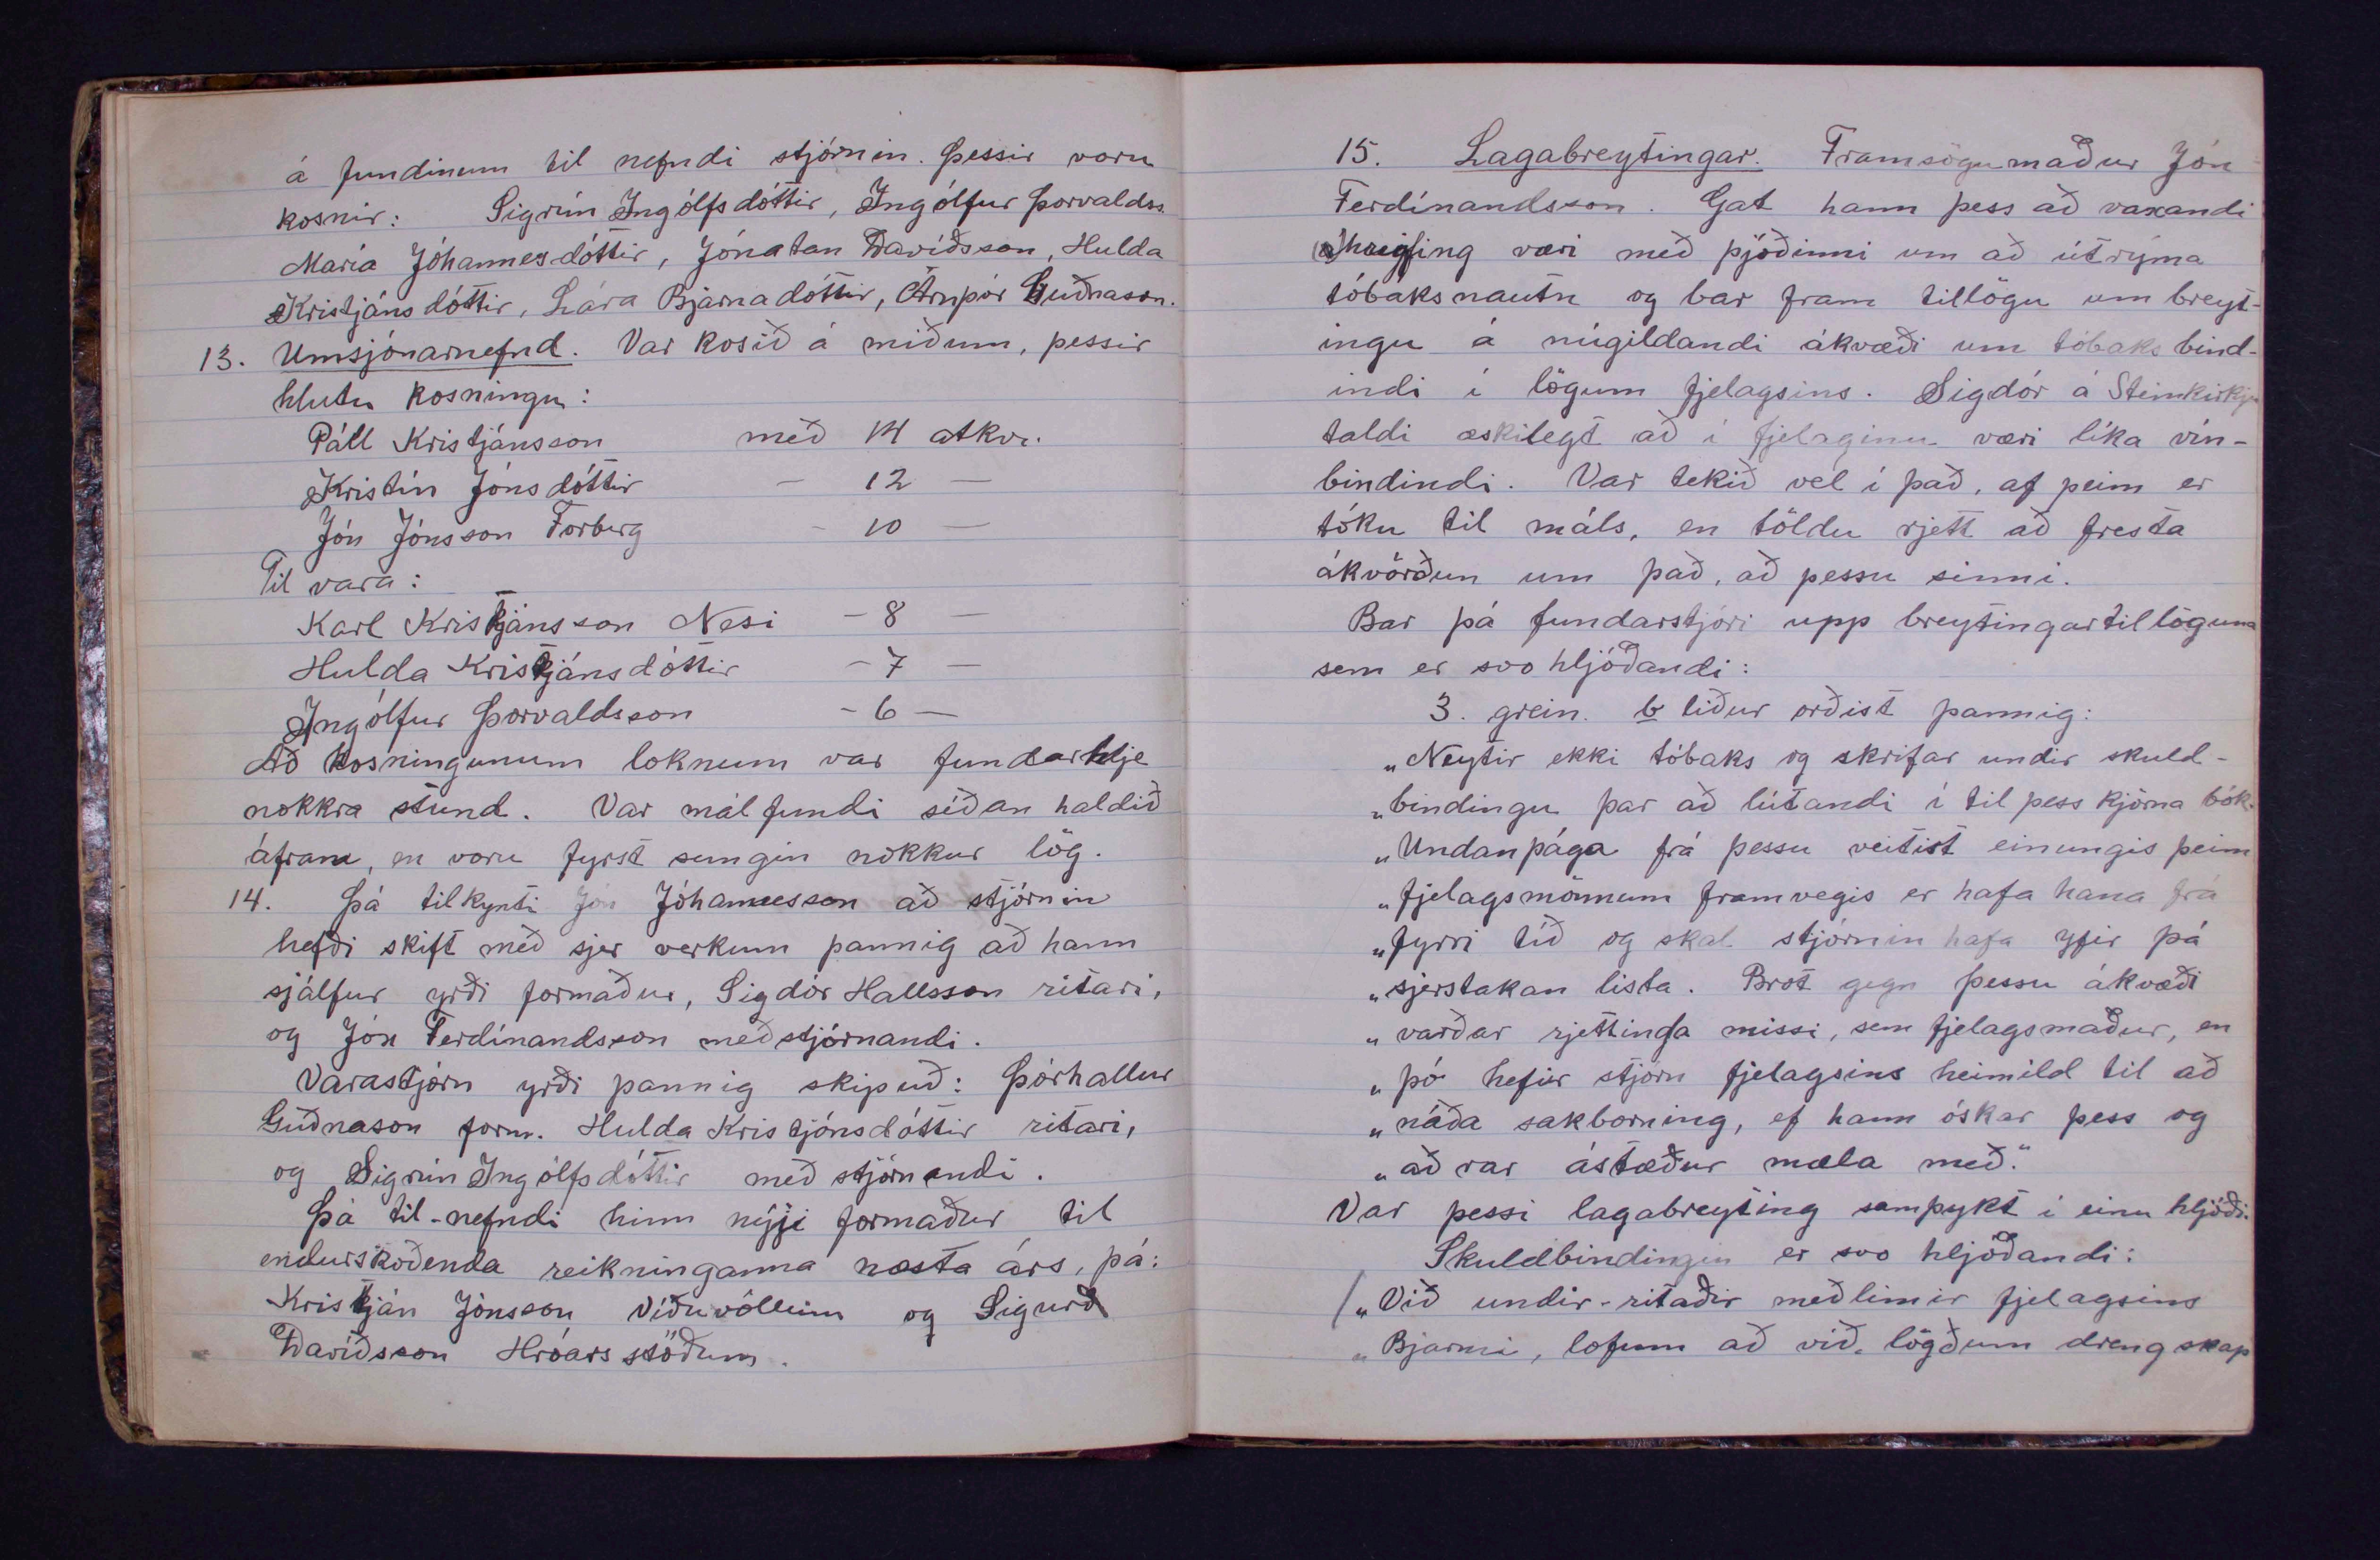 á fundinum til nefndi stjórnin. Þessir voru
kosnir: Sigrún Ingólfsdóttir, Ingólfur Þorvaldss.
María Jóhannesdóttir, Jónatan Davíðsson, Hulda
Kristjánsdóttir, Lára Bjarnadóttir, Arnþór Guðnason.
13. Umsjónarnefnd. Var kosið á miðum, þessir
hlutu kosningu:
Páll Kristjánsson með 14 atkv.
Kristín Jónsdóttir – 12 –
Jón Jónsson Forberg – 10 –
Til vara:
Karl Kristjánsson Nesi – 8 –
Hulda Kristjánsdóttir – 7 –
Ingólfur Þorvaldsson – 6 –
Að kosningunum loknum var fundarhlje
nokkra stund. Var málfundi síðan haldið
áfram, en voru fyrst sungin nokkur lög.
14. Þá tilkynti Jón Jóhannesson að stjórnin
hefði skift með sjer verkum þannig að hann
sjálfur yrði formaður, Sigdór Hallsson ritari,
og Jón Ferdínandsson meðstjórnandi.
Varastjórn yrði þannig skipuð: Þórhallur
Guðnason form. Hulda Kristjánsdóttir ritari,
og Sigrún Ingólfsdóttir með stjórnandi.
Þá til-nefndi hinn nýji formaður til
endurskoðenda reikninganna næsta árs, þá:
Kristján Jónsson Víðivöllum og Sigurð
Davíðsson Hróarsstöðum.
15. Lagabreytingar. Framsögumaður Jón
Ferdínandsson. Gat hann þess að vaxandi
hreifing væri með þjóðinni um að útrýma
tóbaksnautn og bar fram tillögu um breyt-
ingu á núgildandi ákvæði um tóbaks bind-
indi í lögum fjelagsins. Sigdór á Steinkirkju
taldi æskilegt að í fjelaginu væri líka vín-
bindindi. Var tekið vel í það, af þeim er
tóku til máls, en töldu rjett að fresta
ákvörðun um það, að þessu sinni.
Bar þá fundarstjóri upp breytingartillöguna
sem er svo hljóðandi:
3. grein. b liður orðist þannig:
„Neytir ekki tóbaks og skrifar undir skuld-
„bindingu þar að lútandi í til þess kjörna bók.
„Undanþága frá þessu veitist einungis þeim
„fjelagsmönnum framvegis er hafa hana frá
„fyrri tíð og skal stjórnin hafa yfir þá
„sjerstakan lista. Brot gegn þessu ákvæði
„varðar rjettinda missi, sem fjelagsmaður, en
„þó hefir stjórn fjelagsins heimild til að
„náða sakborning, ef hann óskar þess og
„aðrar ástæður mæla með."
Var þessi lagabreyting samþykt í einu hljóði.
Skuldbindingin er svo hljóðandi:
„Við undir-ritaðir meðlimir fjelagsins
„Bjarmi, lofum að við lögðum drengskap